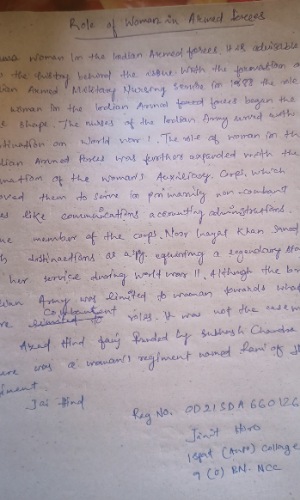 Role of Woman in Armed forces
woman in the Indian Armed forces. It is advisable
the history behind the issue. With the formation of
Indian Armed Military Nursing service in 1888 the role
woman in the Indian Armed forces began to
shape. The nurses of the Indian Army served with
distinction in world war 1. The role of woman in the
Indian Armed forces was further expanded with the
formation of the woman's Auxiliary Corps, which
allowed them to serve in primarily non-combant
like communications accounting administrations.
member of the corps. Noor Inayat Khan served
distinctions as a spy, a legendary
her service during world war 11. Although the
Indian Army was limited to woman towards
combatant
roles. It was not the case
Azad Hind fauj headed by Subhash Chandra
there was a woman's regiment named Rani of
regiment
Jai Hind
Reg No. OD21SDA 660126
College
9 (O) BN. NCC